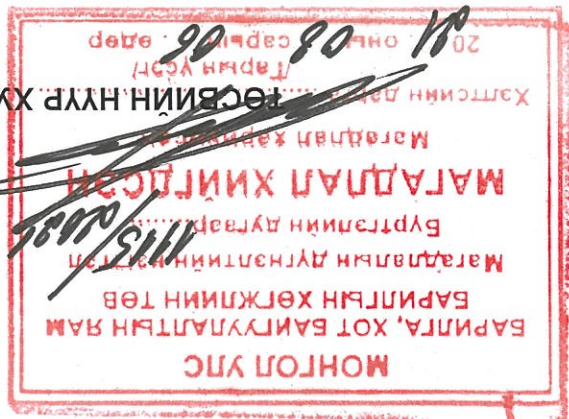 МОНГОЛ УЛС
БАРИЛГА, ХОТ БАЙГУУЛАЛТЫН ЯАМ
БАРИЛГЫН ХӨГЖЛИЙН ТӨВ
Магадлалын дүгнэлтийн
Бүртгэлийн дугаар
МАГАДЛАЛ ХИЙГДСЭН
Магадлал
Хэлтсийн дарга
ТӨСВИЙН НҮҮР ХУ
/Гарын үсэг/
20 оны 08 сарын 06 өдөр